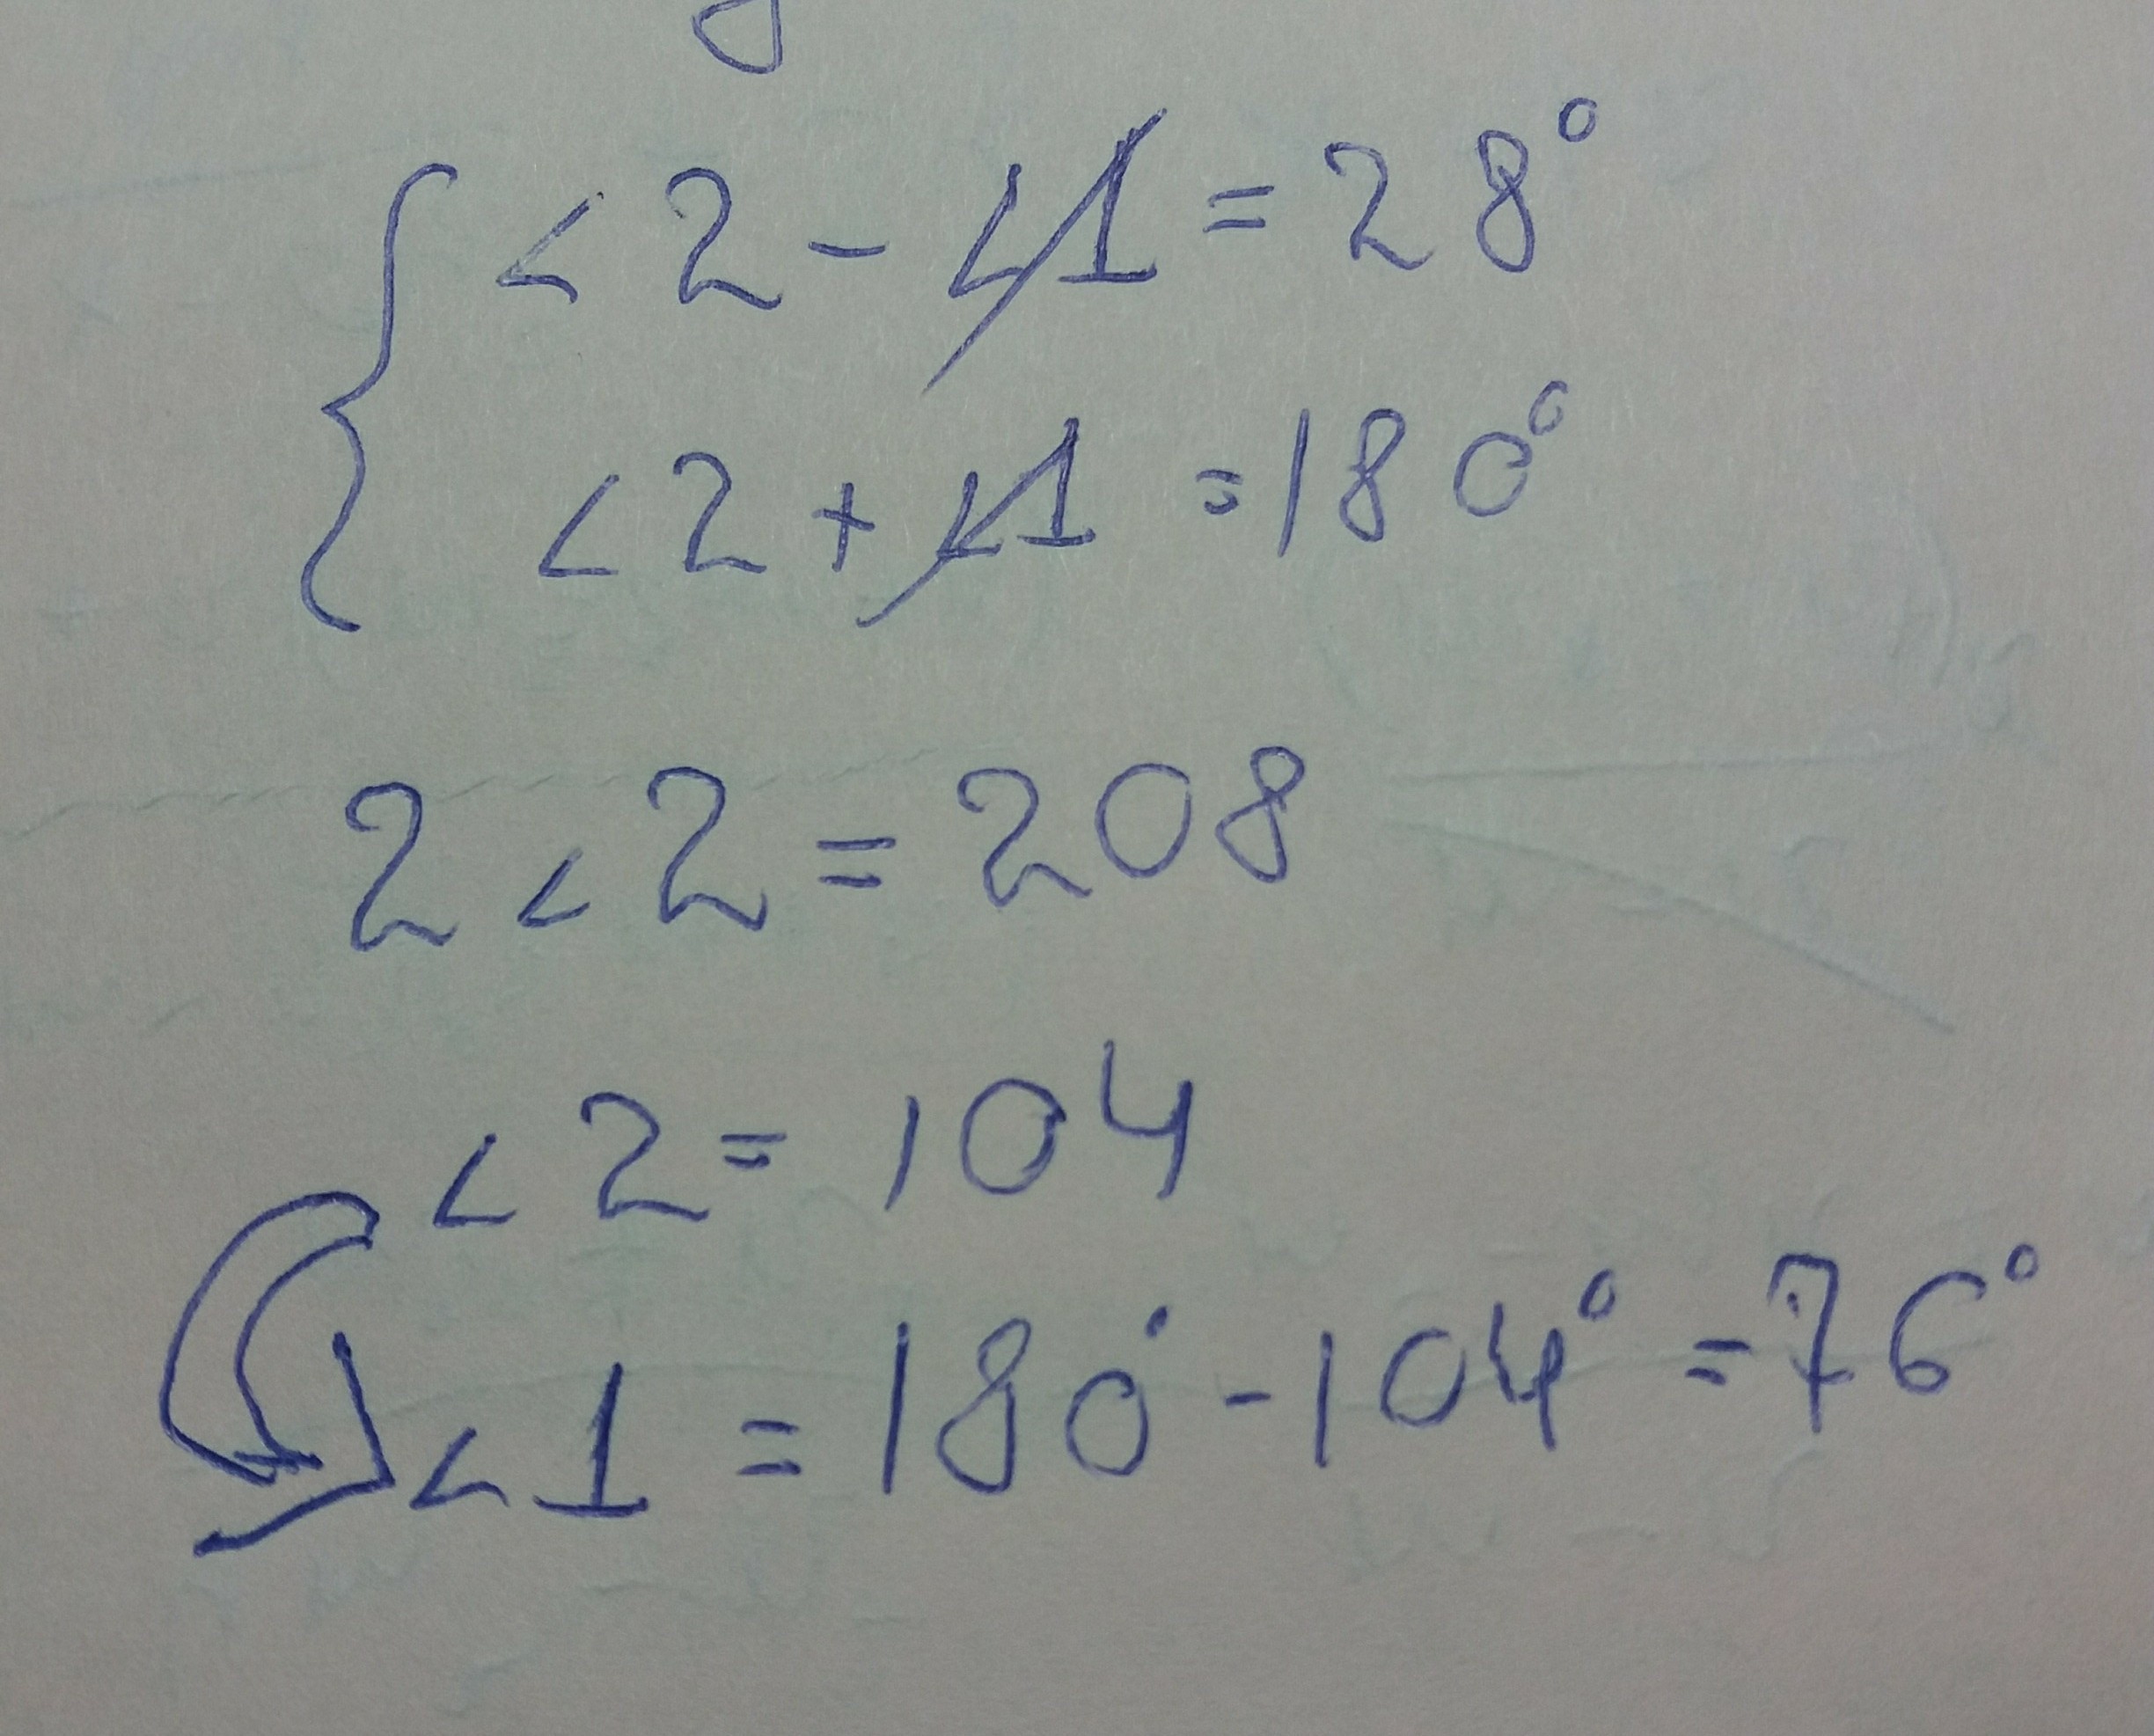 <2 - <1 = 28°
<2 + <1 = 180°
2<2 = 208
<2 = 104
<1 = 180° - 104° = 76°